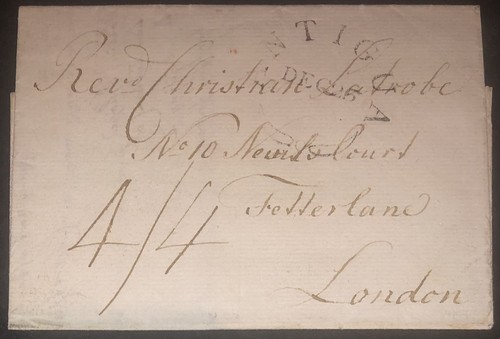 ANTIGUA
Revd Christian Latrobe
No 10 Nevils Court
4/4
Fetterlane
London